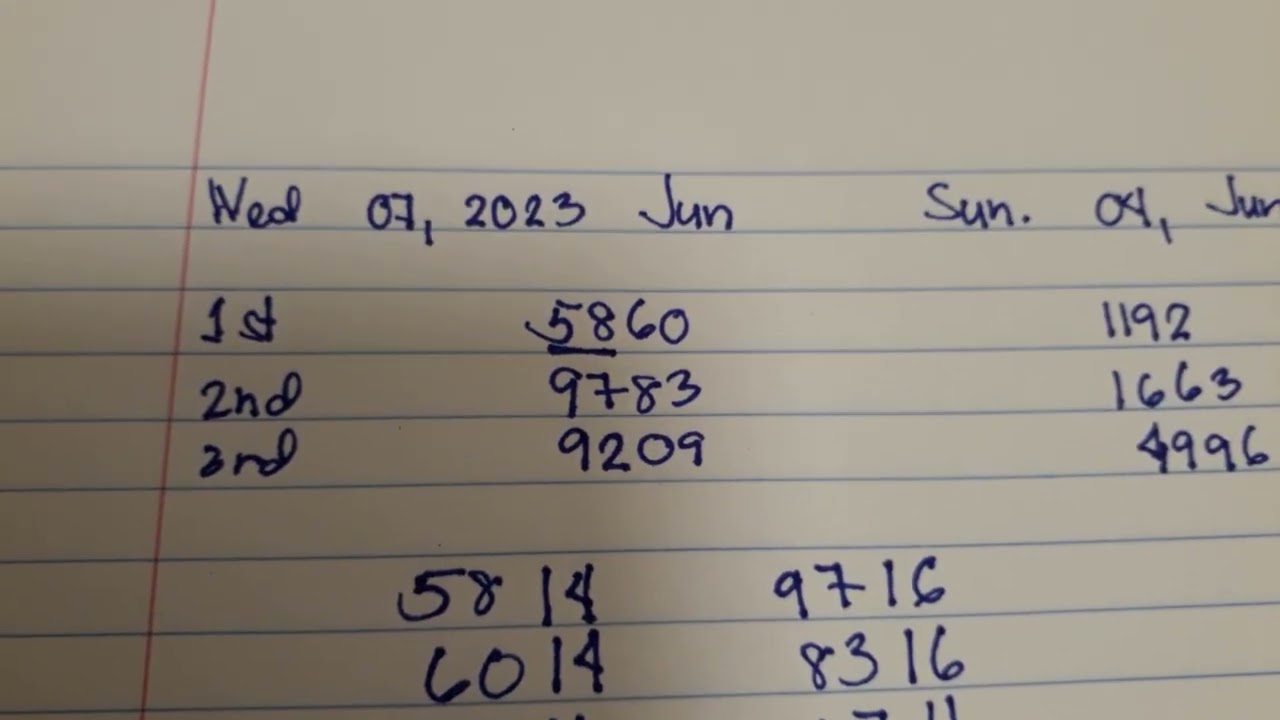 Wed 07, 2023 Jun Sun. 04, Jun
1st 5860 1192
2nd 9783 1663
3rd 9209 4996
5814 9716
6014 8316